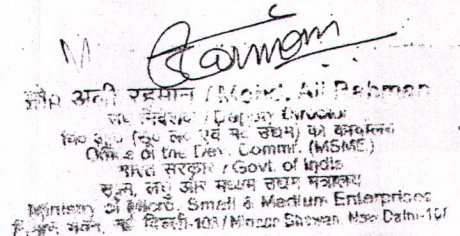 मो० अली रहमान / Mohd. Ali Rahman
उप निदेशक / Deputy Director
वि० आ० (सू० ल० एवं म० उद्यम) का कार्यालय
Office of the Dev. Commr. (MSME)
भारत सरकार / Govt. of India
सूक्ष्म, लघु और मध्यम उद्यम मंत्रालय
Ministry of Micro, Small & Medium Enterprises
निर्माण भवन, नई दिल्ली-108 / Nirman Bhawan, New Delhi-108